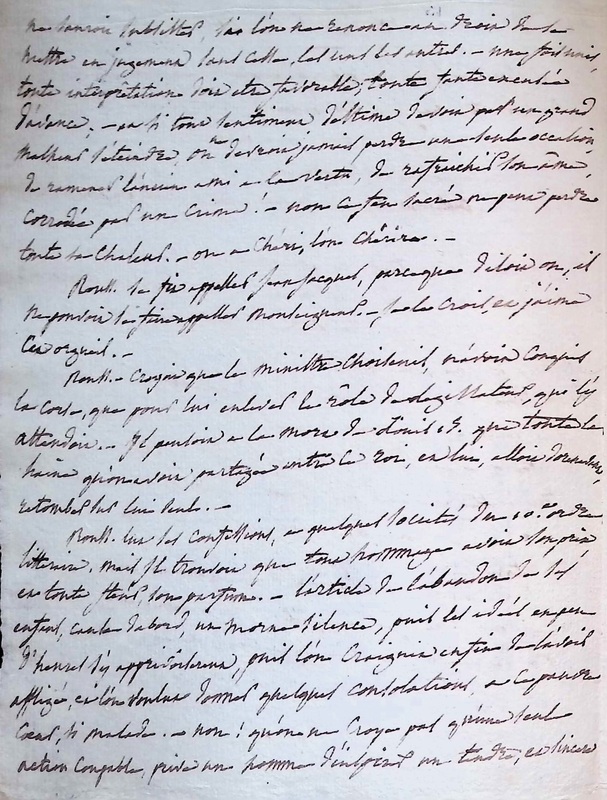 ne sauroit subsister, si l'on ne renonce au droit de se
mettre en jugement sans cesse, les uns les autres. – une fois unis,
toute interprétation doit etre favorable, toute faute excusée
d'avance. – et si tout sentiment d'éstime devoit par un grand
malheur s'eteindre, on ne devroit jamais perdre une seule occasion,
de ramener l'ancien ami a la vertu, de rafraichir son âme,
corrodée par un crime! – non ce feu sacré ne peut perdre
toute sa chaleur. – on a chéri, l'on chérira. –
Rouss. se fit appeller Jean Jacques, parceque disoit on, il
ne pouvoit se faire appeller Monseigneur. – je le crois, et j'aime
cet orgueil. –
Rouss. – croyoit que le ministre Choiseuil, n'avoit conquis
la corse, que pour lui enlever le rôle de législateur, qui l'y
attendoit. – Il pensoit a la mort de Louis 15. que toute la
haine qu'on avoit partagée entre ce roi, et lui, alloit dorenavant,
retomber sur lui seul. –
Rouss. lut ses confessions, a quelques sociétés du 10.me ordre
litteraire, mais Il trouvoit que tout hommage avoit son prix
et toute fleur, son parfum. – l'article de l'abandon de ses
enfans, causa d'abord, un morne silence, puis les idées en peu
d'heures s'y apprivoiserent, puis l'on craignit enfin de l'avoir
affligé, et l'on voulut donner quelques consolations, a ce pauvre
coeur, si malade. – non! qu'on ne croye pas qu'une seule
action coupable, prive un homme d'inspirer un tendre, et sincere